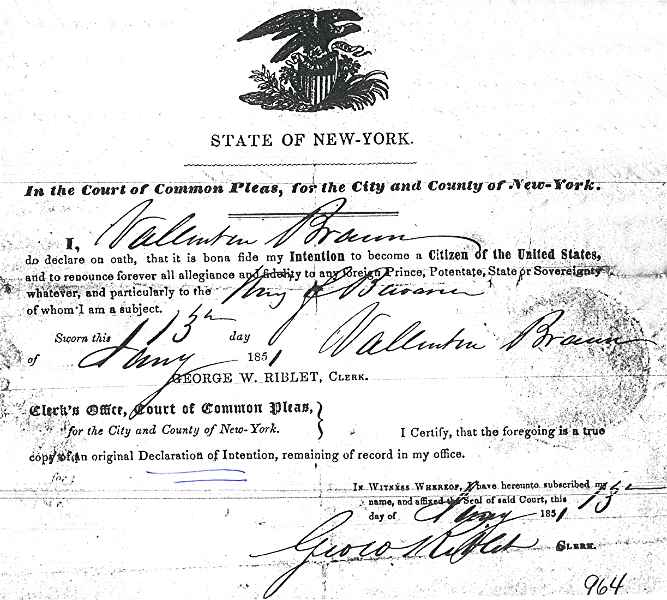 STATE OF NEW-YORK.
In the Court of Common Pleas, for the City and County of New-York.
I, Vallentin Braun
do declare on oath, that it is bona fide my Intention to become a Citizen of the United States,
and to renounce forever all allegiance and fidelity to any foreign Prince, Potentate, State or Sovereignty
whatever, and particularly to the King of Bavaria
of whom I am a subject.
Sworn this 13th day Vallentin Braun
of Jany 1851
GEORGE W. RIBLET, CLERK.
Clerk's Office, Court of Common Pleas,
for the City and County of New-York.
I Certify, that the foregoing is a true
copy of an original Declaration of Intention, remaining of record in my office.
for
IN WITNESS WHEREOF, I have hereunto subscribed my
name, and affixed the Seal of said Court, this 13th
day of Jany 1851
Geo W Riblet CLERK.
964